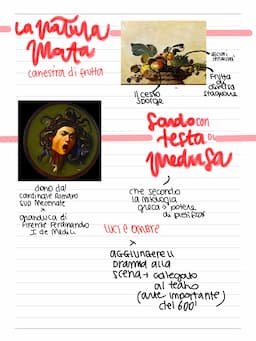 La natura
Morta
canestra di frutta
alcuni
frutta
di diversa
stagione
il cesto
sporge
Scudo con
testa di
Medusa
dono dal
cardinale
suo Mecenate
x
granduca di
Firenze Ferdinando
I de Medici
che secondo
la mitologia
greca
potere
di pietrificar
luci e ombre
x
aggiungere il
dramma alla
scena → collegato
al teatro
(arte importante)
del 600'